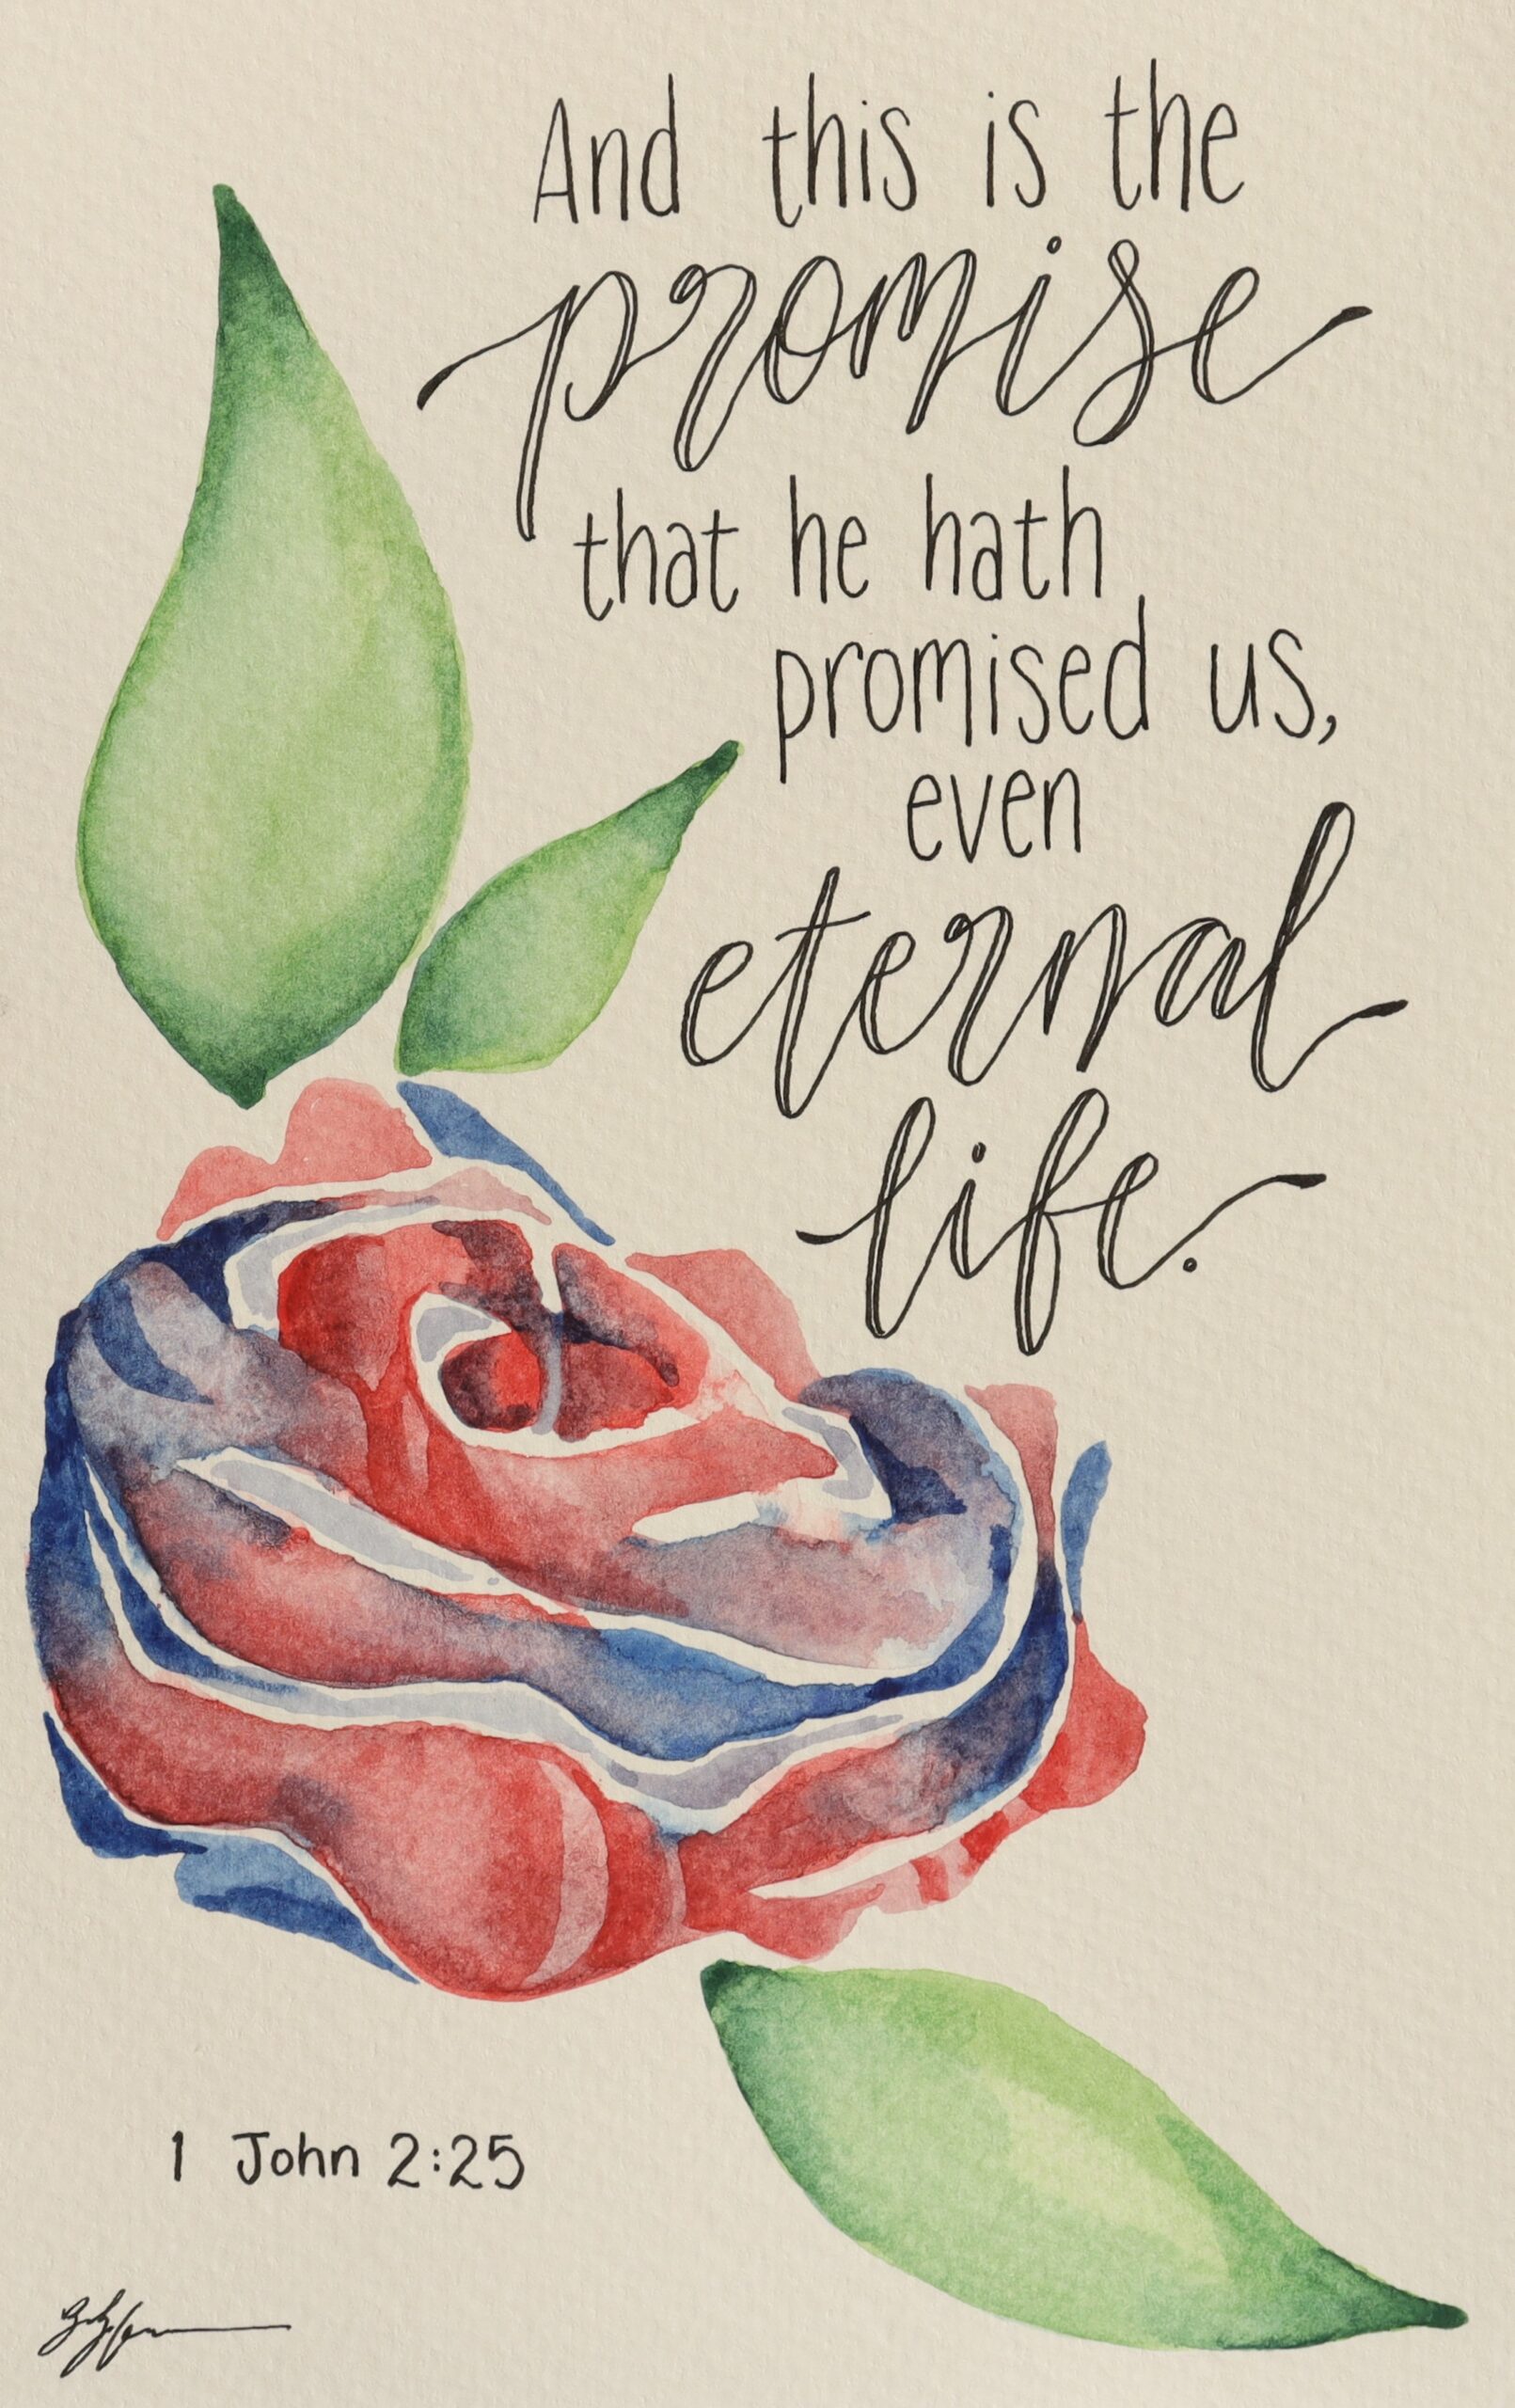 And this is the
promise
that he hath
promised us,
even
eternal
life.
1 John 2:25